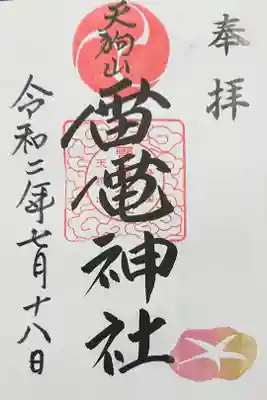 奉拝
天狗山
雷電神社
令和二年七月十八日